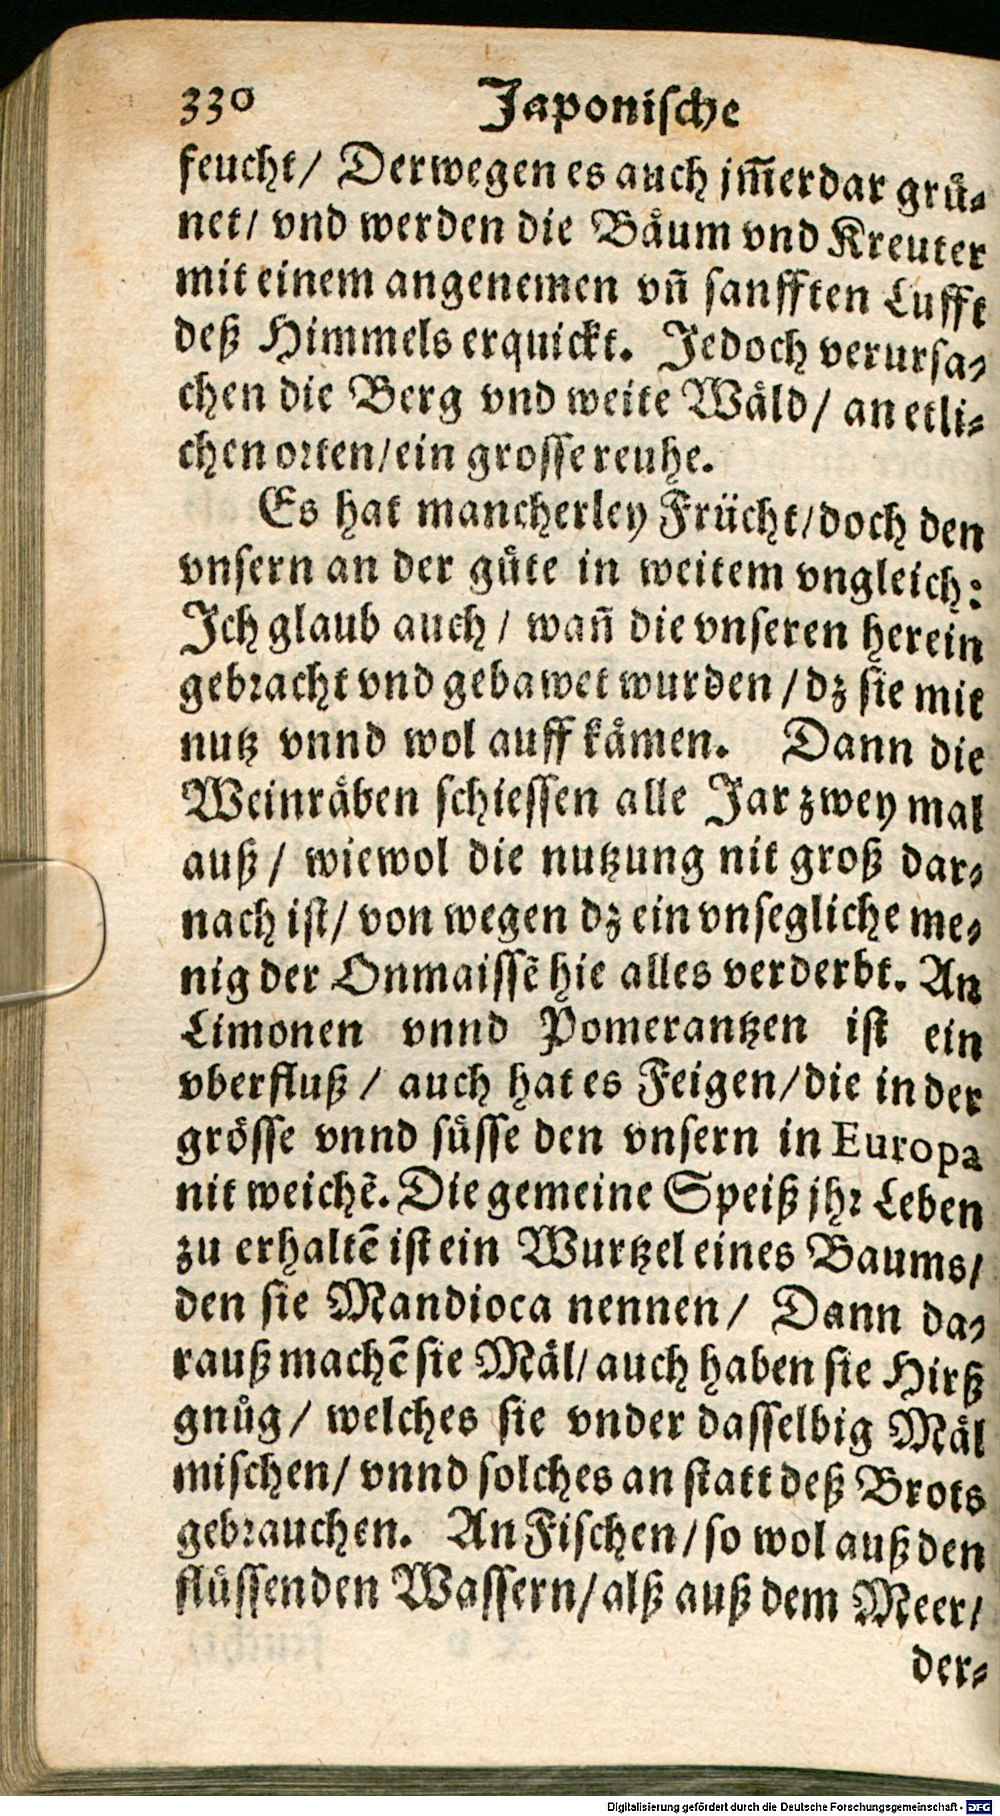 330 Japonische
feucht/ Derwegen es auch jm̃erdar gruͤ-
net/ vnd werden die Baͤum vnd Kreuter
mit einem angenemen vñ sanfften Lufft
deß Himmels erquickt. Jedoch verursa-
chen die Berg vnd weite Waͤld/ an etli-
chen orten/ein grosse reuhe.
Es hat mancherley Frücht/doch den
vnsern an der guͤte in weitem vngleich:
Jch glaub auch/ wañ die vnseren herein
gebracht vnd gebawet wurden/dz sie mit
nutz vnnd wol auff kaͤmen. Dann die
Weinraͤben schiessen alle Jar zwey mal
auß/ wiewol die nutzung nit groß dar-
nach ist/ von wegen dz ein vnsegliche me-
nig der Onmaissẽ hie alles verderbt. An
Limonen vnnd Pomerantzen ist ein
vberfluß/ auch hat es Feigen/die in der
groͤsse vnnd suͤsse den vnsern in Europa
nit weichẽ. Die gemeine Speiß jhr Leben
zu erhaltẽ ist ein Wurtzel eines Baums/
den sie Mandioca nennen/ Dann da-
rauß machẽ sie Maͤl/ auch haben sie Hirß
gnuͦg/ welches sie vnder dasselbig Maͤl
mischen/ vnnd solches an statt deß Brots
gebrauchen. An Fischen/so wol auß den
fluͤssenden Wassern/alß auß dem Meer/
der-
Digitalisierung gefördert durch die Deutsche Forschungsgemeinschaft - DFG